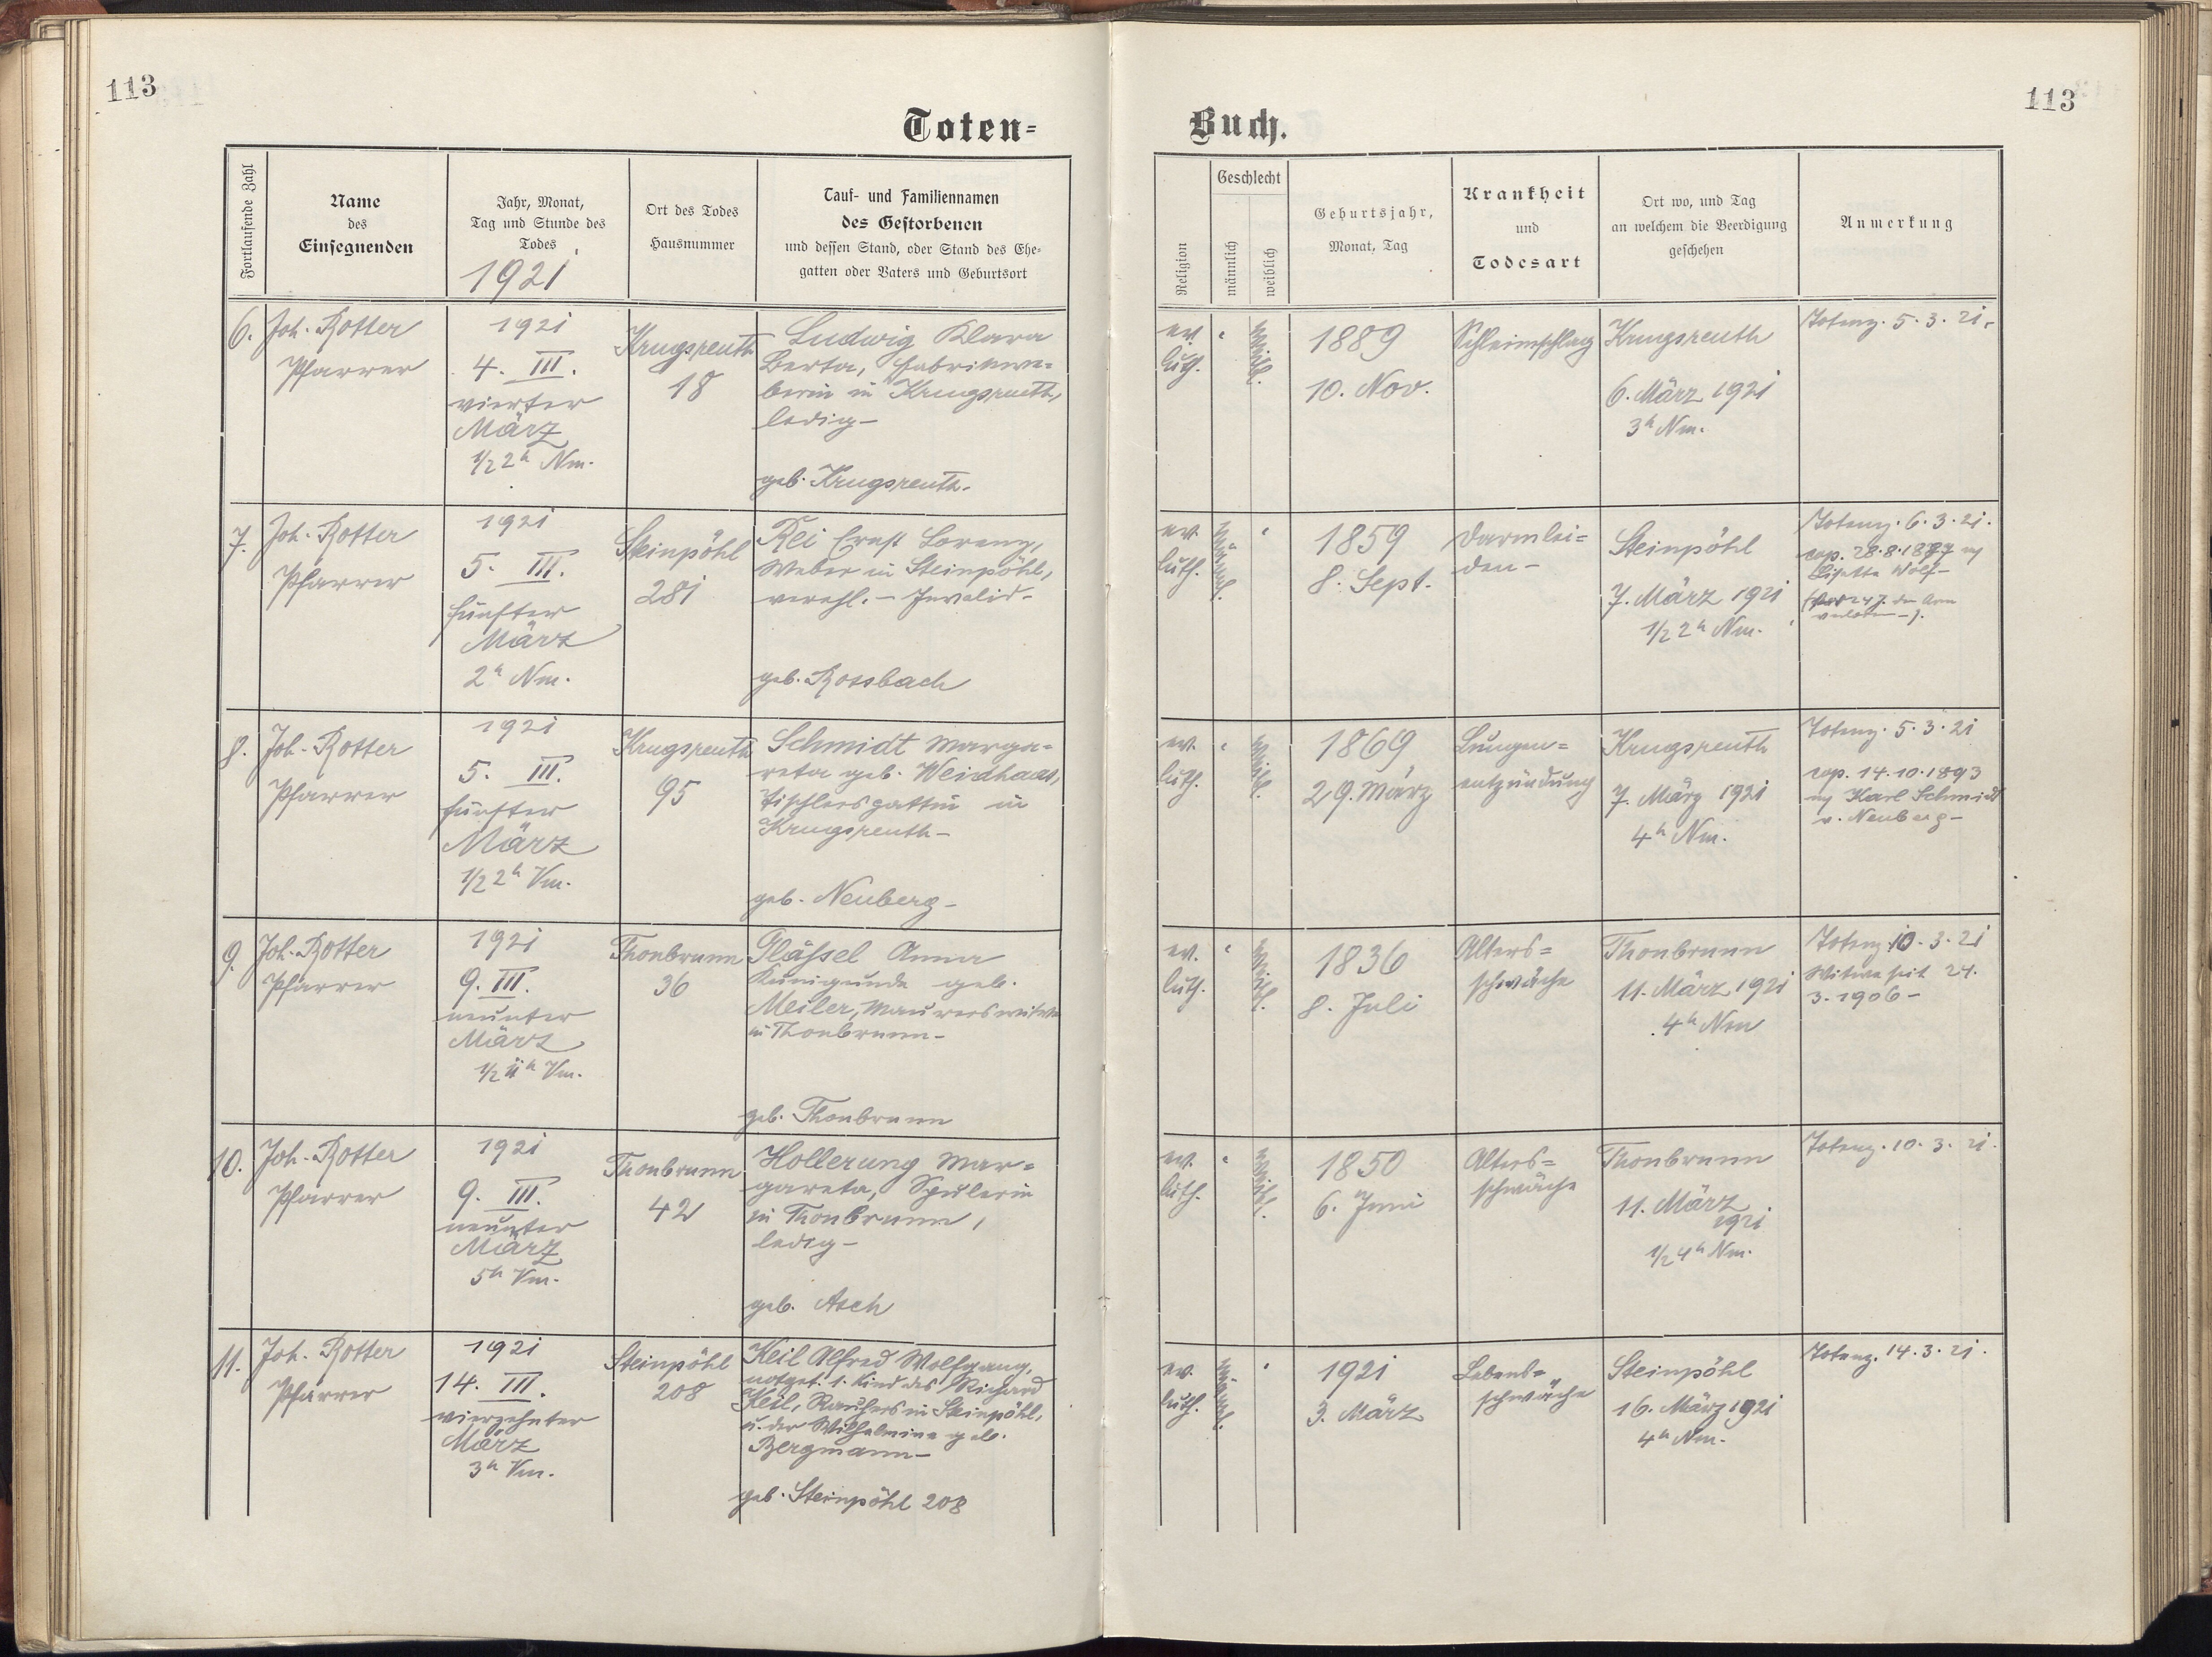 113
Toten-
Fortlaufende Zahl
Name
des
Einsegnenden
Jahr, Monat,
Tag und Stunde des
Todes
1921
Ort des Todes
Hausnummer
Tauf- und Familiennamen
des Gestorbenen
und dessen Stand, oder Stand des Ehe-
gatten oder Vaters und Geburtsort
6.
Joh. Rotter
Pfarrer
1921
4. III.
vierter
März
1/2 2h Nm.
Krugsreuth
18
Ludwig Klara
Berta, Fabrikwe-
berin in Krugsreuth,
ledig-
geb. Krugsreuth.
7.
Joh. Rotter
Pfarrer
1921
5. III.
fünfter
März
2h Nm.
Steinpöhl
281
Rei Ernst Lorenz,
Weber in Steinpöhl,
verehl. - Invalid-
geb. Rossbach
8.
Joh. Rotter
Pfarrer
1921
5. III.
fünfter
März
1/2 2h Vm.
Krugsreuth
95
Schmidt Marga-
reta geb. Weidhaas,
Tischlersgattin in
Krugsreuth-
geb. Neuberg-
9.
Joh. Rotter
Pfarrer
1921
9. III.
neunter
März
1/2 11h Vm.
Thonbrunn
36
Glässel Anna
Kunigunde geb.
Meiler, Maurerswitwe
in Thonbrunn-
geb. Thonbrunn
10.
Joh. Rotter
Pfarrer
1921
9. III.
neunter
März
5h Vm.
Thonbrunn
42
Hollerung Mar-
gareta, Spulerin
in Thonbrunn,
ledig-
geb. Asch
11.
Joh. Rotter
Pfarrer
1921
14. III.
vierzehnter
März
3h Vm.
Steinpöhl
208
Keil Alfred Wolfgang,
notget. 1. Kind des Richard
Keil, Rauhers in Steinpöhl,
u. der Wilhelmine geb.
Bergmann-
geb. Steinpöhl 208
113
Buch.
Religion
Geschlecht
männlich
weiblich
Geburtsjahr,
Monat, Tag
Krankheit
und
Todesart
Ort wo, und Tag
an welchem die Beerdigung
geschehen
Anmerkung
ev.
luth.
weibl.
1889
10. Nov.
Schleimschlag
Krugsreuth
6. März 1921
3h Nm.
Totenz. 5. 3. 21.
ev.
luth.
männl.
1859
8. Sept.
Darmlei-
den-
Steinpöhl
7. März 1921
1/2 2h Nm.
Totenz. 6. 3. 21.
cop. 28. 8. 1887 m
Lisette Wolf-
ev.
luth.
weibl.
1869
29. März
Lungen-
entzündung
Krugsreuth
7. März 1921
4h Nm.
Totenz. 5. 3. 21
cop. 14. 10. 1893
m Karl Schmidt
v. Neuberg-
ev.
luth.
weibl.
1836
8. Juli
Alters-
schwäche
Thonbrunn
11. März 1921
4h Nm
Totenz. 10. 3. 21
Witwe seit 24.
3. 1906-
ev.
luth.
weibl.
1850
6. Juni
Alters-
schwäche
Thonbrunn
11. März
1921
1/2 4h Nm.
Totenz. 10. 3. 21.
ev.
luth.
männl.
1921
3. März
Lebens-
schwäche
Steinpöhl
16. März 1921
4h Nm.
Totenz. 14. 3. 21.